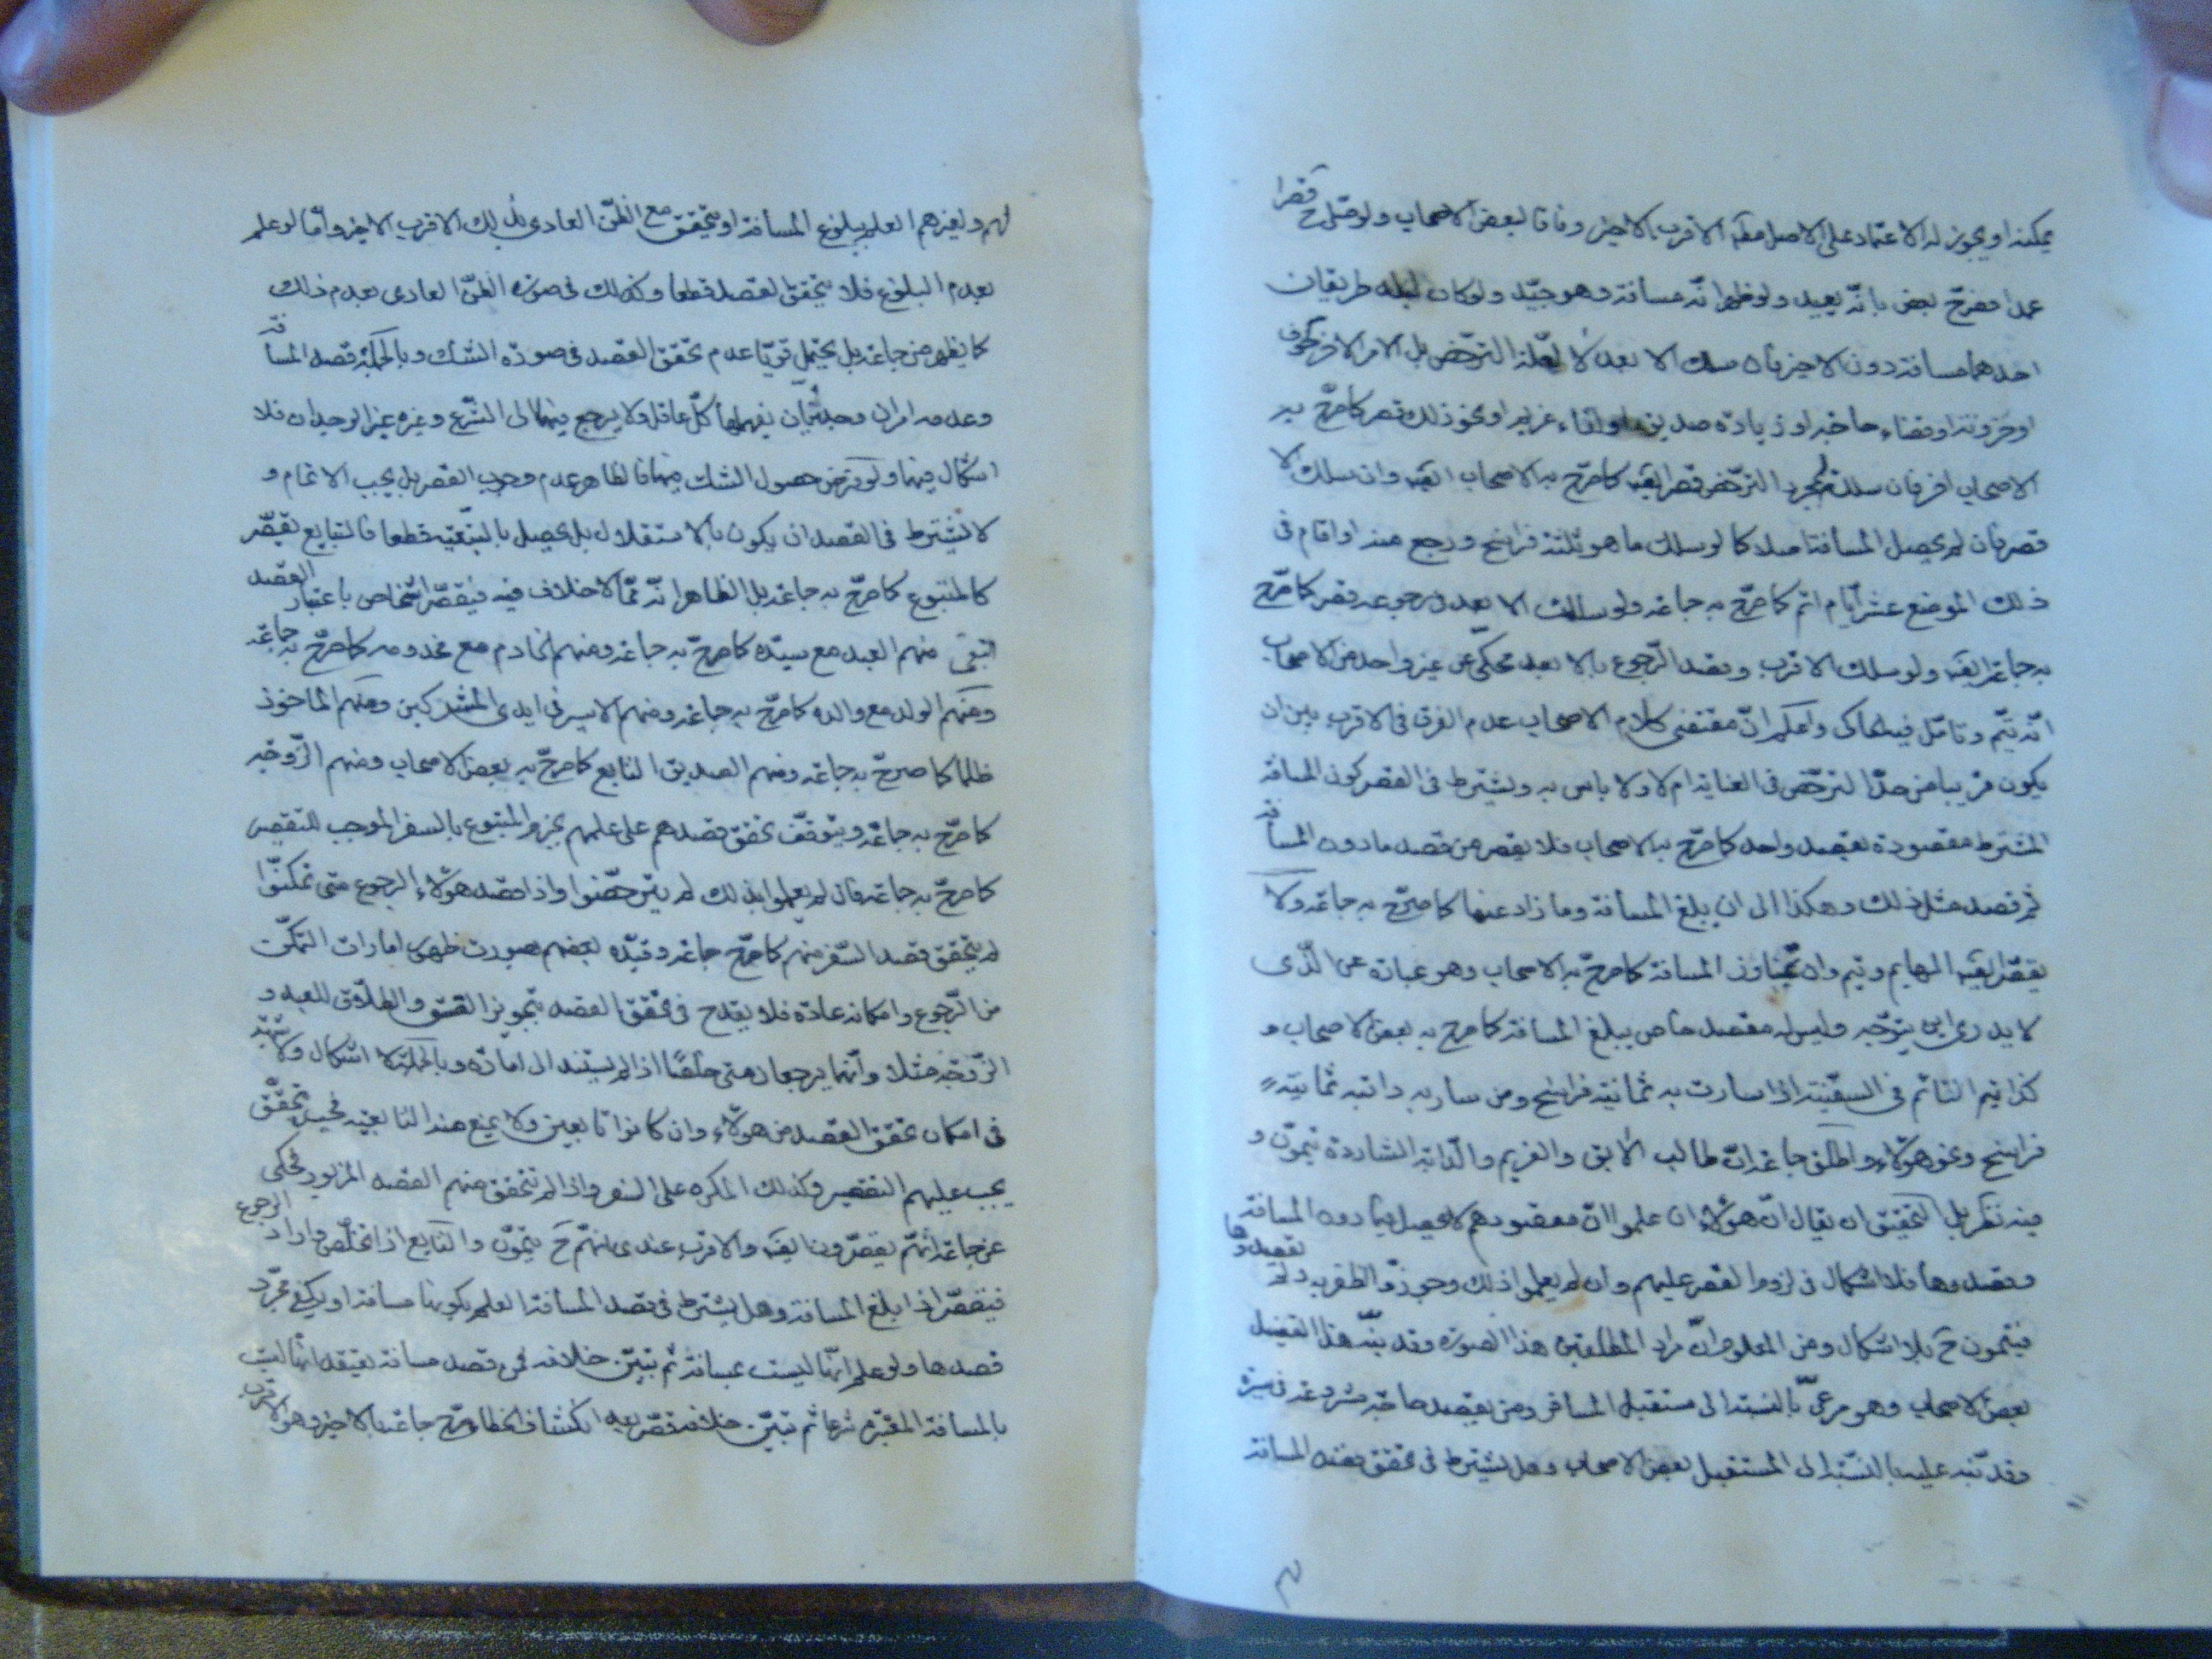 يمكنه او يجوز له الاعتماد على الاصل فقه الاقرب الاخير وفاقا لبعض الاصحاب ولو صلى ح قصرا
عمدا فصرح بعض بانه يعيد ولو ظهر انه مسافة وهو جيد ولو كان لبلد طريقان
احدهما مسافة دون الاخر فان سلك الابعد لا لعلة الترخص بل لامر اخر كخوف
او حزونة او قضاء حاجة او زيادة صديق او لقاء غريم او نحو ذلك قصر كما صرح به
الاصحاب فان سلكه لمجرد الترخص قصر ايضا كما صرح به الاصحاب ايضا وان سلك الا
قصر فان لم يحصل المسافة اصلا كما لو سلك ما هو ثلثة فراسخ ورجع منه او اقام في
ذلك الموضع عشرة ايام اتم كما صرح به جماعة ولو سلك الابعد في رجوعه قصر كما صرح
به جماعة ايضا ولو سلك الاقرب وقصد الرجوع بالابعد فحكى عن غير واحد من الاصحاب
انه يتم وتامل فيه الحاكى واعلم ان مقتضى كلام الاصحاب عدم الفرق في الاقرب بين ان
يكون قريبا من حد الترخص في الغاية ام لا ولا باس به ويشترط في القصر كون المسافة
المشترط مقصودة بقصد واحد كما صرح به الاصحاب فلا يقصر من قصد ما دون المسافة
ثم قصد مثل ذلك وهكذا الى ان بلغ المسافة وما زاد عنها كما صرح به جماعة ولا
يقصر ايضا الهايم ويتم وان تجاوز المسافة كما صرح به الاصحاب وهو عبارة عن الذى
لا يدرى اين يتوجه وليس له مقصد خاص يبلغ المسافة كما صرح به بعض الاصحاب و
كذا يتم النائم في السفينة اذا سارت به ثمانية فراسخ ومن سار به دابته ثمانية
فراسخ ونحو هؤلاء واطلق جماعة ان طالب الابق والغريم والدابة الشاردة يتمون و
فيه نظر بل التحقيق ان يقال ان هؤلاء ان علموا ان مقصودهم لا يحصل فيما دون المسافة
وقصدوها فلا اشكال في لزوم القصر عليهم وان لم يعلموا ذلك وجوزوا الظفر به ولم يقصدوها
فيتمون ح بلا اشكال ومن المعلوم ان مراد المطلقين هذا الصورة وقد نبه هذا التفصيل
بعض الاصحاب وهو مرعى بالنسبة الى مستقبل المسافر ومن يقصد حاجة
وقد نبه عليه بالنسبة الى المستقبل بعض الاصحاب وهل يشترط في تحقق قصد المسافة
لهم ولغيرهم العلم ببلوغ المسافة او يتحقق مع الظن العادى بذلك الاقرب الاخير واما لو علم
بعدم البلوغ فلا يتحقق القصد قطعا وكذلك في صورة الظن العادى بعدم ذلك
كما يظهر من جماعة بل يحتمل قويا عدم تحقق القصد في صورة الشك وبالجملة قصد المسافة
وعدمه امران وجدانيان يفهمهما كل عاقل ولا يرجع فيهما الى الشرع وغيره غير الوجدان فلا
اشكال فيهما ولو فرض حصول الشك فيهما فالظاهر عدم وجوب القصر بل يجب الاتمام و
لا يشترط في القصد ان يكون بالاستقلال بل يحصل بالتبعية قطعا فالتابع يقصر
كالمتبوع كما صرح به جماعة بل الظاهر انه مما لا خلاف فيه فيقصر اشخاص باعتبار القصد
التبعى منهم العبد مع سيده كما صرح به جماعة ومنهم الخادم مع مخدومه كما صرح به جماعة
ومنهم الولد مع والده كما صرح به جماعة ومنهم الاسير في ايدى المشركين ومنهم الماخوذ
ظلما كما صرح به جماعة ومنهم الصديق التابع كما صرح به بعض الاصحاب ومنهم الزوجة
كما صرح به جماعة ويتوقف تحقق قصدهم على علمهم بجزم المتبوع بالسفر الموجب للتقصير
كما صرح به جماعة فان لم يعلموا بذلك لم يترخصوا واذا قصد هؤلاء الرجوع متى تمكنوا
لم يتحقق قصد السفر منهم كما صرح جماعة وقيده بعضهم بصورت ظهور امارات التمكن
من الرجوع وامكانه عادة فلا يقدح في تحقق القصد تجويز العتق والطلاق للعبد و
الزوجة مثلا وانهما يرجعان متى حصلا اذا لم يستند الى امارة وبالجملة لا اشكال ولا شبهة
في امكان تحقق القصد من هؤلاء وان كانوا تابعين ولا يمنع منه التابعية فحيث تحقق
يجب عليهم التقصير وكذلك المكره على السفر واذا لم يتحقق منهم القصد المزبور فحكى
عن جماعة انهم يقصرون ايضا والاقرب عندى انهم ح يتمون والتابع اذا تخلص واراد الرجوع
فيقصر اذا بلغ المسافة وهل يشترط في قصد المسافة العلم بكونها مسافة او يكفى مجرد
قصدها ولو علم انها ليست بمسافة ثم تبين خلافه فمن قصد مسافة يعتقد انها ليست
بالمسافة المعتبرة شرعا ثم تبين خلافه قصر بعد انكشاف الخطاء صرح جماعة بالاخير وهو الاقرب